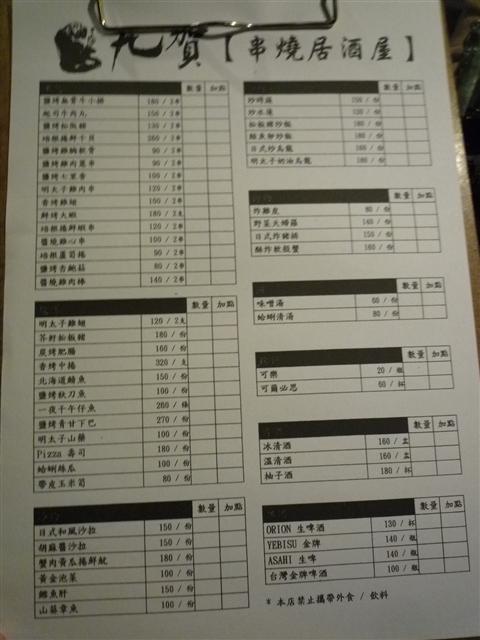 九賀【串燒居酒屋】
數量 加點
鹽烤無骨牛小排 180 / 2串
起司牛肉丸 150 / 2串
鹽烤松板豬 130 / 2串
培根捲鮮干貝 260 / 2串
鹽烤雞軟骨 90 / 2串
鹽烤雞肉蔥串 90 / 2串
鹽烤七里香 100 / 2串
明太子雞肉串 120 / 2串
香烤雞翅 100 / 2串
鮮烤大蝦 180 / 2支
培根捲鮮蝦串 120 / 2串
醬燒雞心串 100 / 2串
培根蘆筍捲 90 / 2串
鹽烤杏鮑菇 80 / 2串
醬燒雞肉棒 140 / 2串
數量 加點
明太子雞翅 120 / 2支
芥籽松板豬 180 / 份
炭烤肥腸 160 / 份
香烤中捲 320 / 支
北海道鯖魚 150 / 份
鹽烤秋刀魚 100 / 份
一夜干午仔魚 260 / 條
鹽烤青甘下巴 270 / 份
明太子山藥 100 / 份
Pizza 壽司 180 / 份
蛤蜊絲瓜 100 / 份
帶皮玉米筍 80 / 份
數量 加點
日式和風沙拉 150 / 份
胡麻醬沙拉 150 / 份
蟹肉黃瓜捲鮮魷 180 / 份
黃金泡菜 100 / 份
鱈魚肝 150 / 份
山藥章魚 100 / 份
數量 加點
炒時蔬 150 / 份
炒水蓮 120 / 份
松板豬炒飯 180 / 份
鮭魚卵炒飯 180 / 份
日式炒烏龍 160 / 份
明太子奶油烏龍 180 / 份
數量 加點
炸雞皮 80 / 份
野菜天婦羅 140 / 份
日式炸豬排 150 / 份
酥炸軟殼蟹 160 / 份
數量 加點
味噌湯 60 / 份
蛤蜊清湯 80 / 份
數量 加點
可樂 20 / 瓶
可爾必思 60 / 杯
數量 加點
冰清酒 160 / 壺
溫清酒 160 / 壺
柚子酒 180 / 杯
數量 加點
ORION 生啤酒 130 / 杯
YEBISU 金牌 140 / 瓶
ASAHI 生啤 140 / 瓶
台灣金牌啤酒 100 / 瓶
* 本店禁止攜帶外食 / 飲料